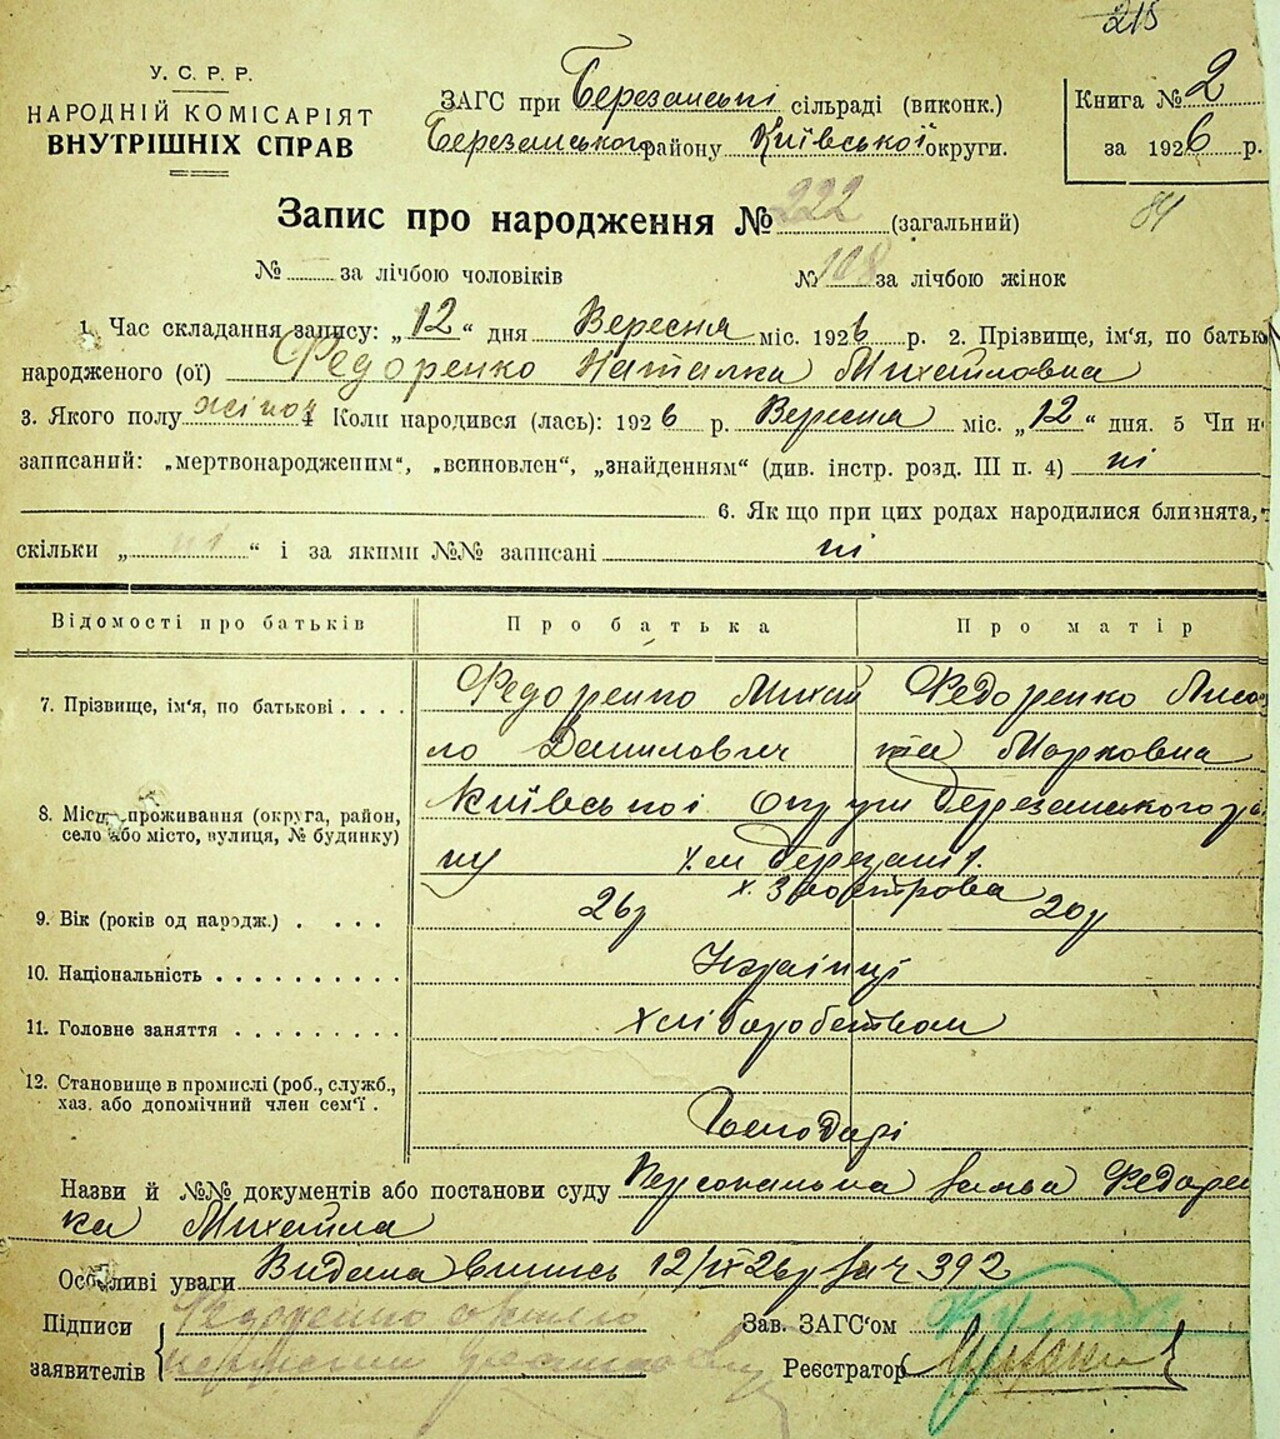 215
У. С. Р. Р.
НАРОДНІЙ КОМІСАРІЯТ
ВНУТРІШНІХ СПРАВ
ЗАГС при Березанські сільраді (виконк.)
Березанського району Київської округи.
Книга № 2
за 1926 р.
84
Запис про народження № 222 (загальний)
№ за лічбою чоловіків № 108 за лічбою жінок
1. Час складання запису: „12“ дня Вересня міс. 1926 р. 2. Прізвище, ім'я, по батькові
народженого (ої) Федоренко Наталка Михайловна
3. Якого полу жіноч 4 Коли народився (лась): 1926 р. Вересня міс. „12“ дня. 5 Чи н
записаний: „мертвонародженим“, „всиновлен“, „знайденням“ (див. інстр. розд. III п. 4) ні
6. Як що при цих родах народилися близнята,
скільки „ні“ і за якими №№ записані ні
Відомості про батьків Про батька Про матір
7. Прізвище, ім'я, по батькові . . . . Федоренко Михай Федоренко
ло Данилович Марковна
8. Місце проживання (округа, район, Київської Округи Березанського ра
село або місто, вулиця, № будинку)
ну Березані
9. Вік (років од народж.) . . . . 26р 20р
10. Національність . . . . . . . . . . Українці
11. Головне заняття . . . . . . . . . Хліборобством
12. Становище в промислі (роб., служб.,
хаз. або допомічний член сем'ї . Господарі
Назви й №№ документів або постанови суду Персональна заява Федорен
ка Михайла
Особливі уваги Видана випись 12/IX 26р за ч 392
Підписи Федоренко Зав. ЗАГС'ом
заявителів Реєстратор